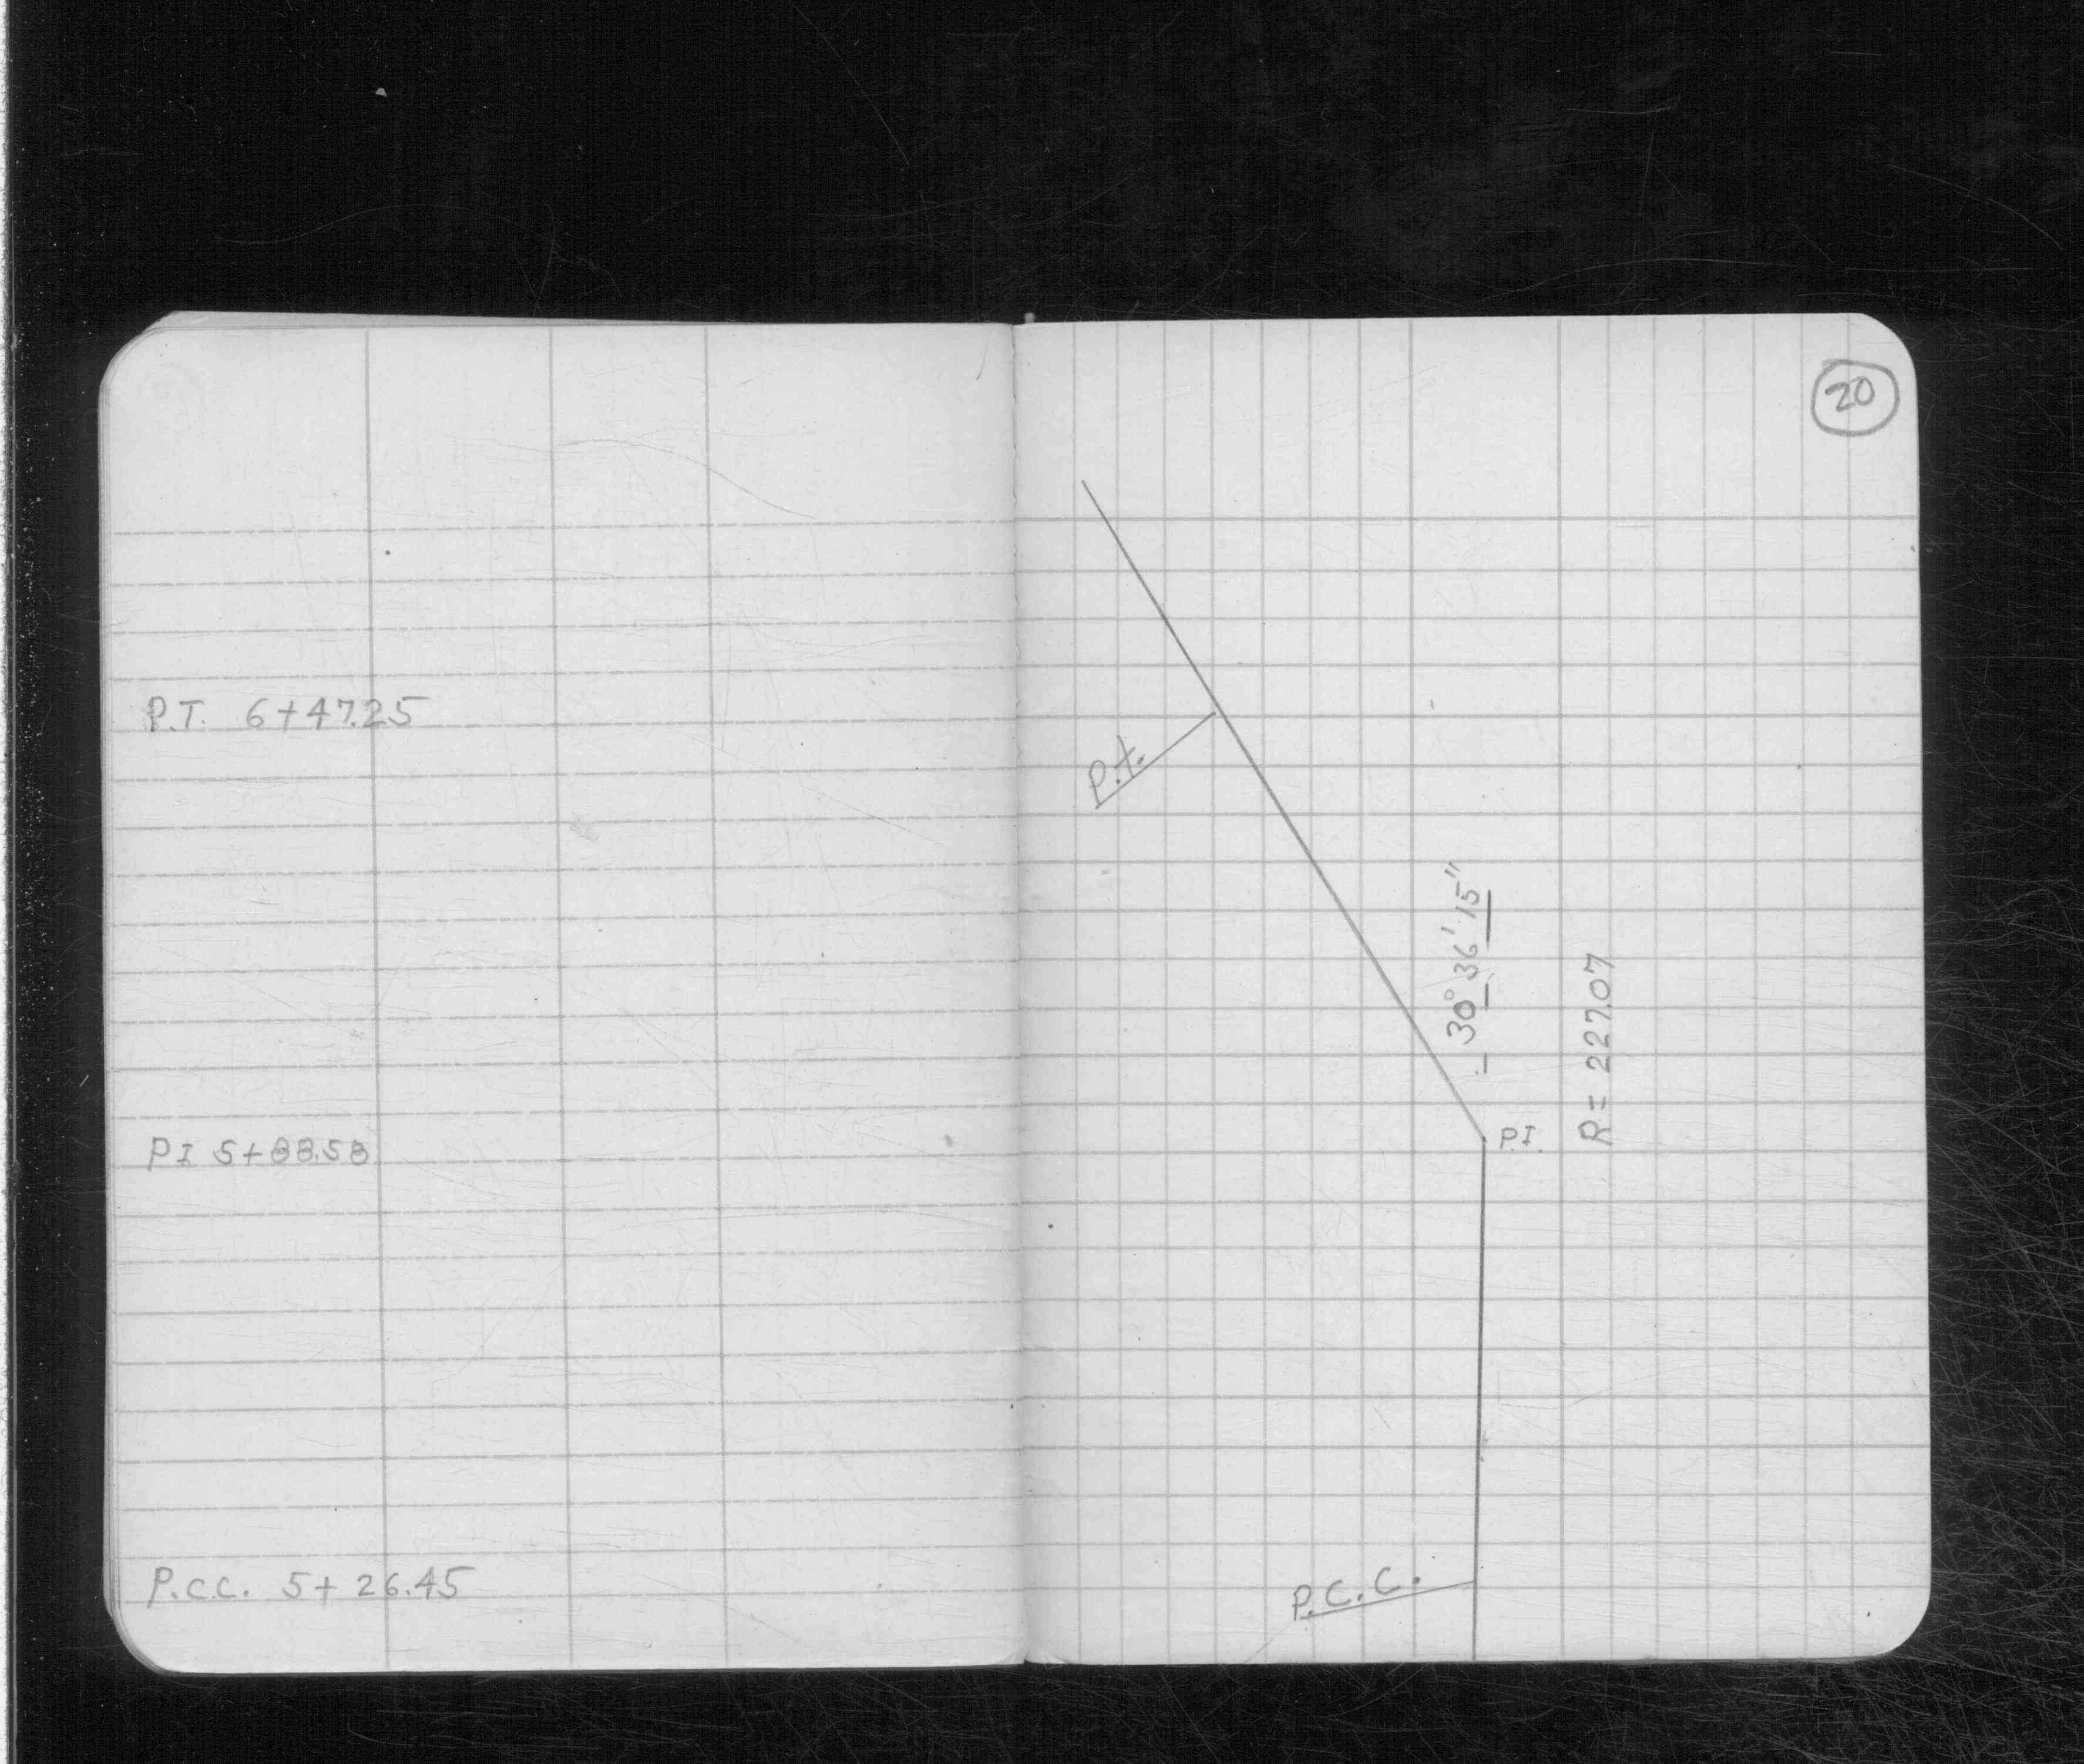 20
P.T. 6+47.25
P.t.
30° 36' 15"
R= 227.07
PI 5+88.58
P.I.
P.C.C. 5+26.45
P.C.C.